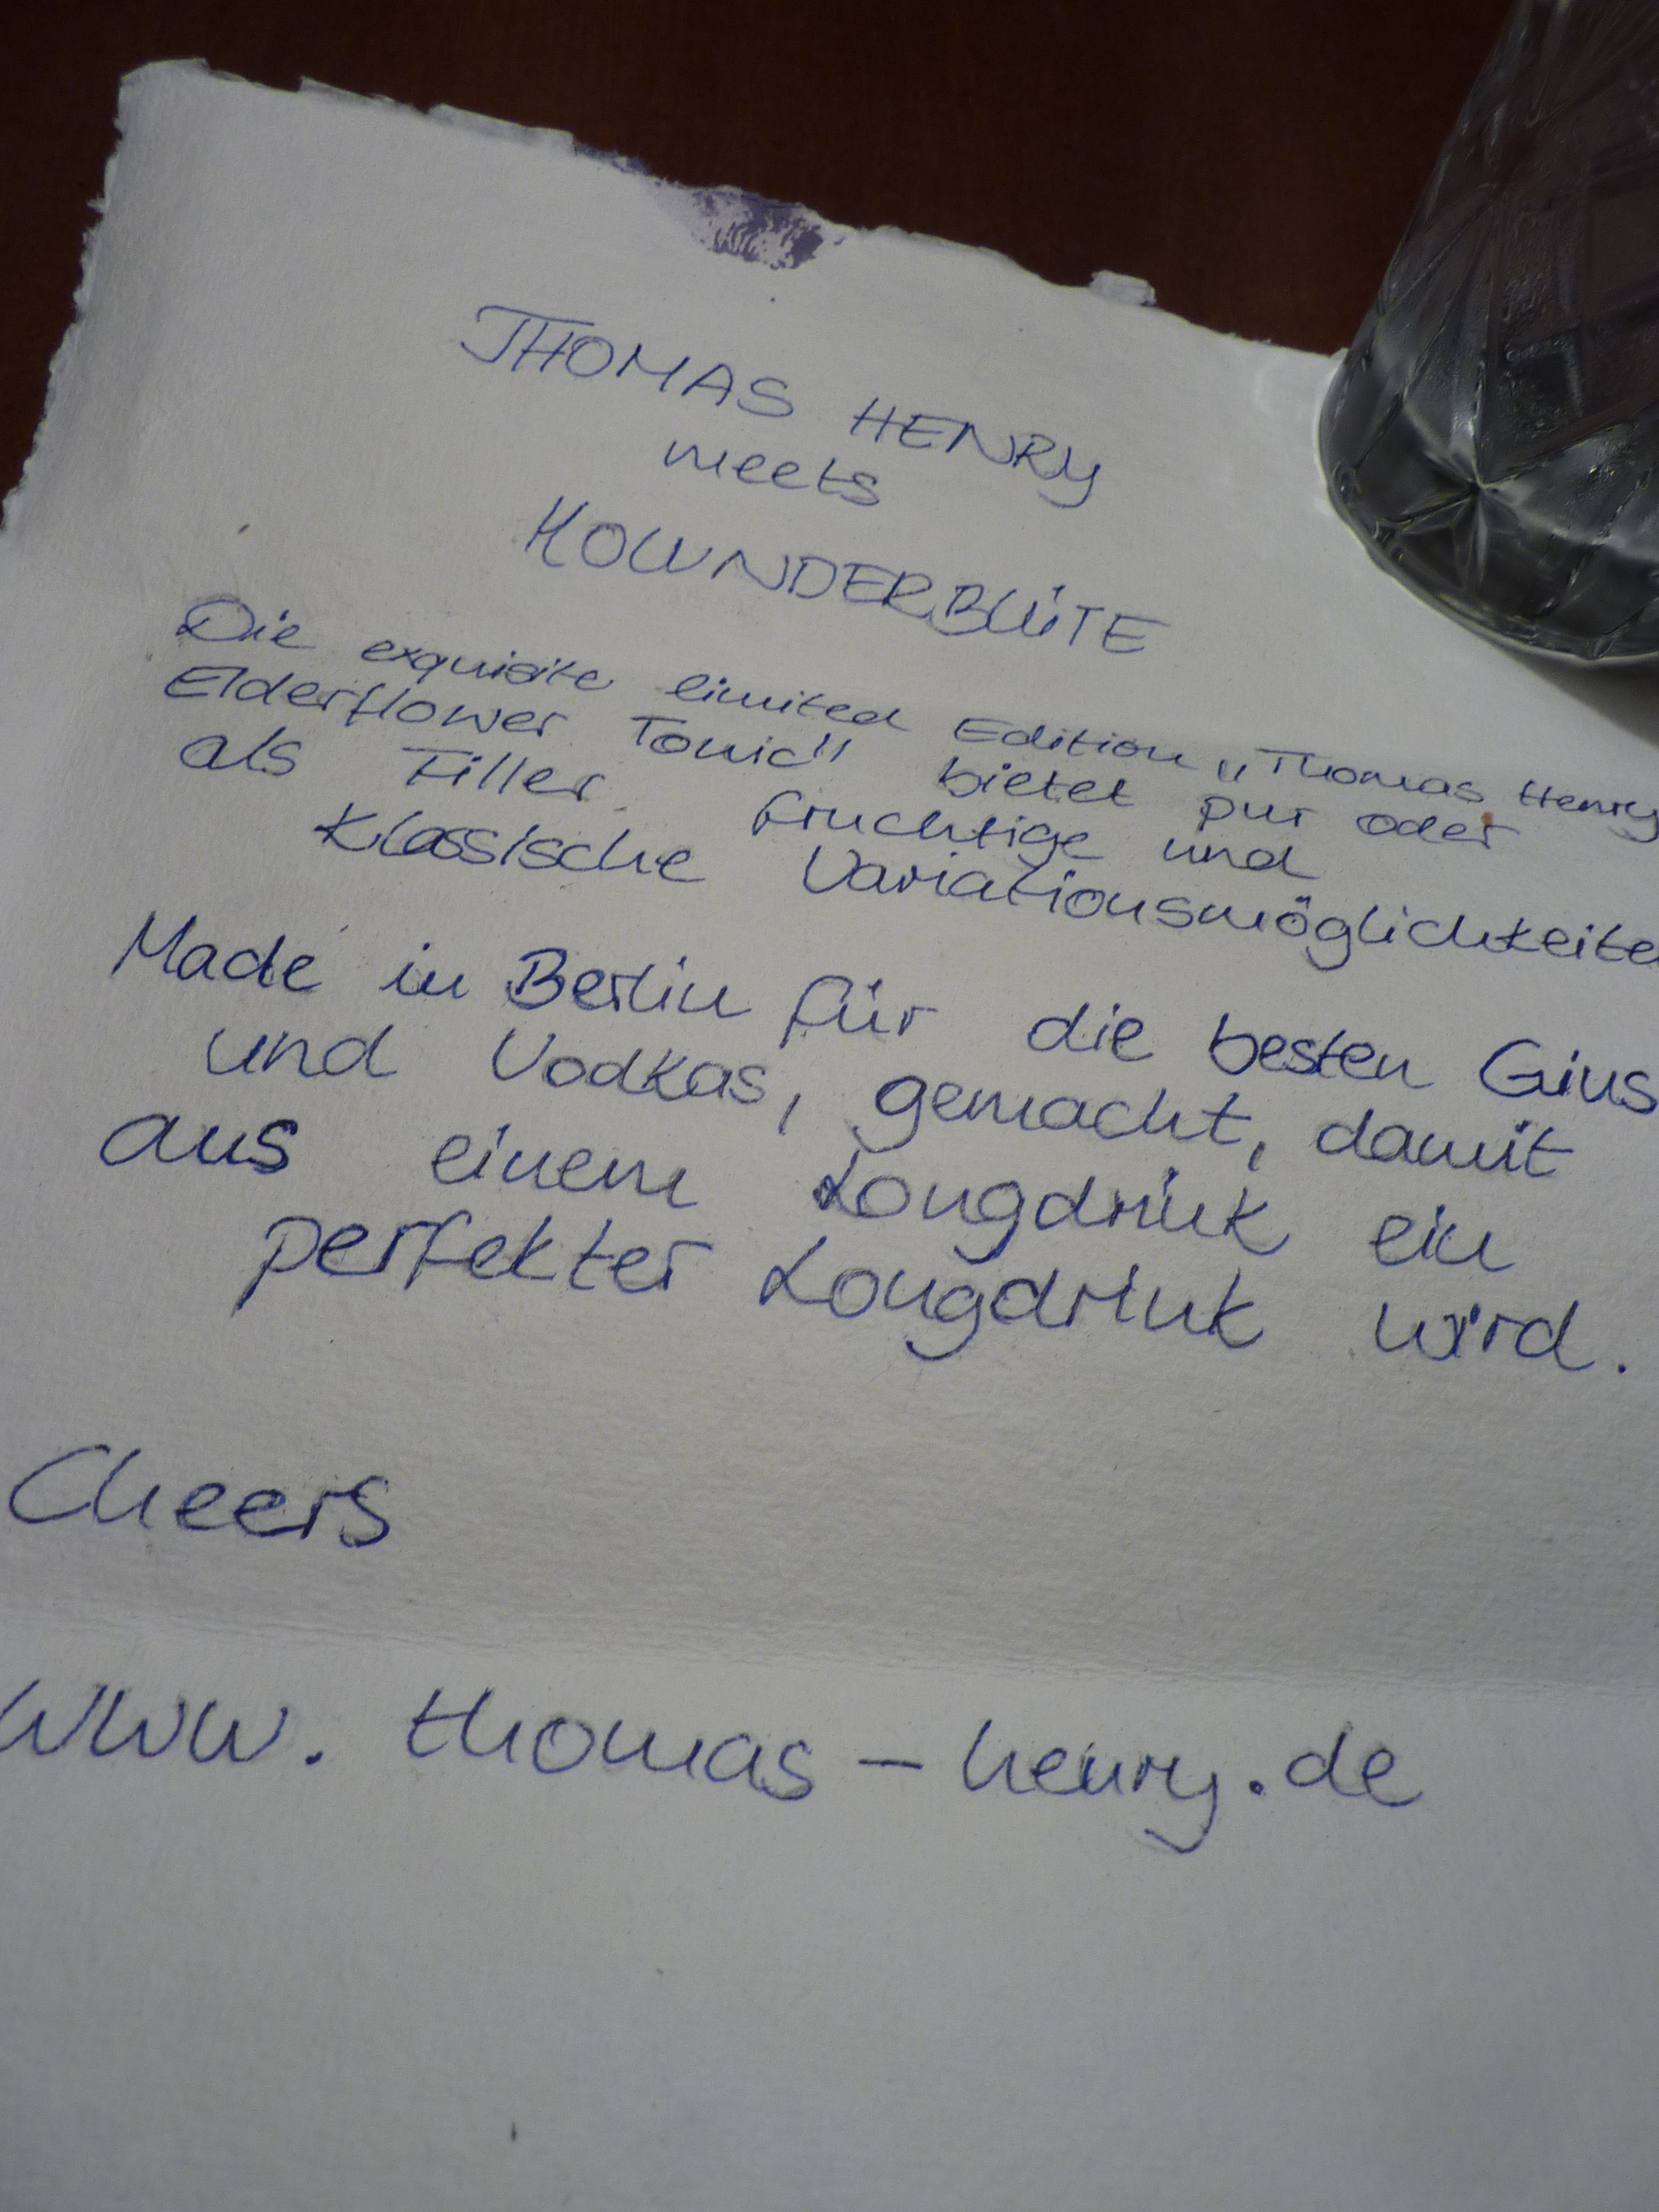 THOMAS HENRY
meets
HOLUNDERBLÜTE
Die exquisite limited Edition „Thomas Henry
Elderflower Tonic" bietet pur oder
als Filler fruchtige und
klassische Variationsmöglichkeite
Made in Berlin für die besten Gins
und Vodkas, gemacht, damit
aus einem Longdrink ein
perfekter Longdrink wird.
Cheers
www.thomas-henry.de